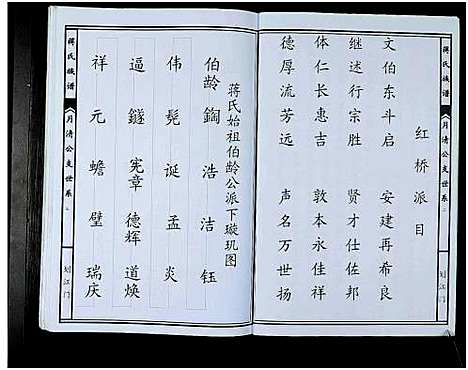 蒋氏族谱
月清公支世系
划江门
红桥派目
文伯东斗启 安建再希良
继述行宗胜 贤才仕佐邦
体仁长惠吉 敦本永佳祥
德厚流芳远 声名万世扬
蒋氏始祖伯龄公派下璇玑图
伯龄 鋾 浩 洁 钰
伟 髡 诞 孟 炎
逼 鐩 宪章 德辉 道焕
祥 元 蟾 璧 瑞庆
蒋氏族谱
月清公支世系
划江门